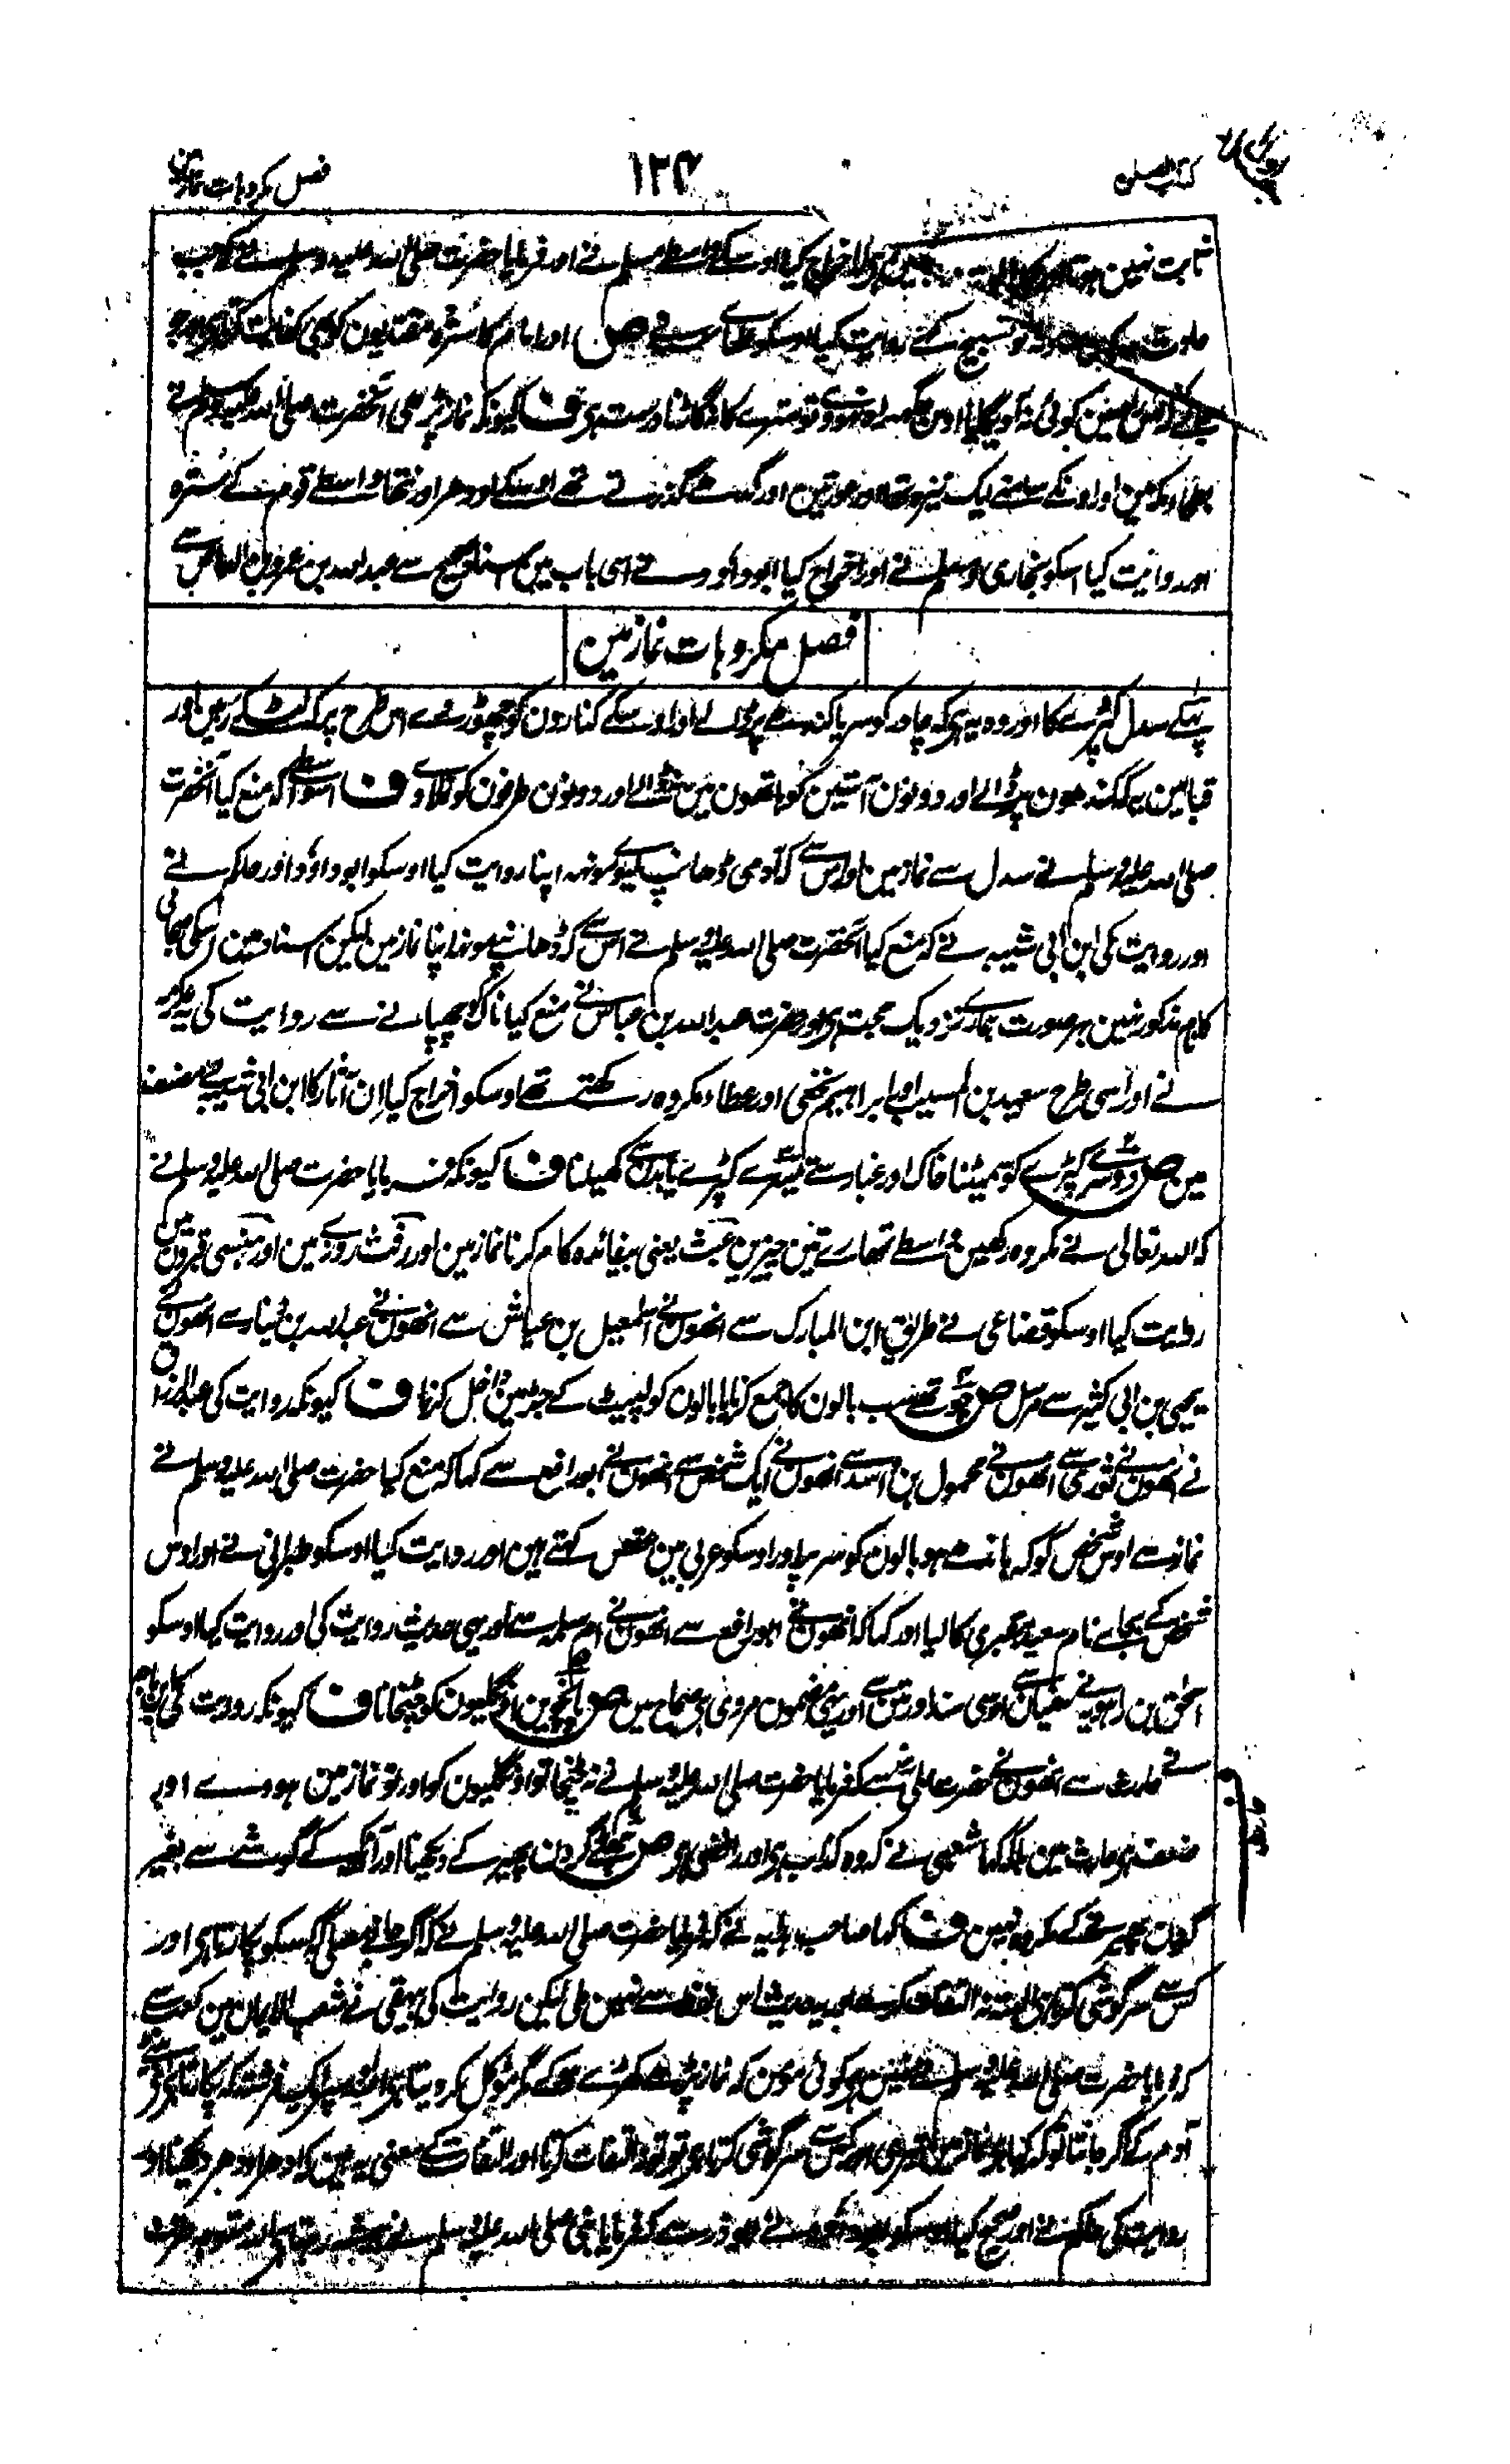 کتاب الصلوۃ ۱۲۴ فصل مکروہات نماز مین
ثابت نہین ہوتا اخراج کیا اوسکے واسطے مسلم نے اور فرمایا حضرت صلی اللہ علیہ وسلم نے کہ جب
تو تسبیح کہے روایت کیا اوسکو ص اور امام کا سُترہ مقتدیون کو بھی کفایت کرتا ہی اور جو
کوئی نہ ہووے تو سترے کا نہ گاڑنا درست ہی ف کیونکہ نماز پڑھی آنحضرت صلی اللہ علیہ وسلم نے
بطحاء مکہ مین اور اونکے سامنے ایک نیزہ تھا اور عورتین اور گدھے گذرتے تھے اوسکے اودھر اور نہ تھا واسطے قوم کے سُترہ
اور روایت کیا اسکو بخاری و مسلم نے اور اخراج کیا ابو داؤد نے اسی باب مین اسناد صحیح سے عبد اللہ بن عمرو بن العاص سے
فصل مکروہات نماز مین
پہلے سدل کپڑے کا اور وہ یہ ہی کہ چادر کو سر یا کندھے پر ڈالے اور اوسکے کنارون کو چھوڑ دے اس طرح پر کہ لٹکے رہین اور
قبا مین یہ کہ کندھون پر ڈالے اور دونون آستین کو ہاتھون مین نہ ڈالے اور دونون طرفون کو نہ ملاوے ف اسواسطے کہ منع کیا آنحضرت
صلی اللہ علیہ وسلم نے سدل سے نماز مین اور اس سے کہ آدمی ڈھانپ لیوے مونہہ اپنا روایت کیا اوسکو ابو داؤد اور حاکم نے
اور روایت کی ابن ابی شیبہ نے کہ منع کیا آنحضرت صلی اللہ علیہ وسلم نے اس سے کہ ڈھانپے مونہہ اپنا نماز مین لیکن اسناد مین اسکی صحابی
کا نام مذکور نہین بہر صورت ہمارے نزدیک حجت ہی اور حضرت عبد اللہ بن عباس نے منع کیا ناک کو چھپانے سے روایت کی یہ عکرمہ
نے اور اسی طرح سعید بن المسیب اور ابراہیم نخعی اور عطاء مکروہ رکھتے تھے اوسکو اخراج کیا ان آثار کا ابن ابی شیبہ نے مصنف
مین ص دوسرے کپڑے کو سمیٹنا خاک اور غبار سے تیسرے کپڑے یا بدن سے کھیلنا ف کیونکہ فرمایا حضرت صلی اللہ علیہ وسلم نے
کہ اللہ تعالی نے مکروہ رکھین واسطے تمھارے تین چیزین عبث یعنی بیفائدہ کام کرنا نماز مین اور رفث روزے مین اور ہنسی قبرون مین
روایت کیا اوسکو قضاعی نے طریق ابن المبارک سے انھون نے اسمعیل بن عیاش سے انھون نے عبد اللہ بن دینار سے انھون نے
یحیی بن ابی کثیر سے مرسل ص چوتھے سب بالون کا جمع کرنا یا بالون کو لپیٹ کے جڑ مین داخل کرنا ف کیونکہ روایت کی عبد الرزاق
نے انھون نے ثوری سے انھون نے مخول بن راشد سے انھون نے ایک شخص سے انھون نے ابو رافع سے کہا کہ منع کیا حضرت صلی اللہ علیہ وسلم نے
نماز سے اوس شخص کو کہ باندھے ہو بالون کو سر پر اور اوسکو عربی مین عقص کہتے ہین اور روایت کیا اوسکو طبرانی نے اور اوس
شخص کے بجاے نام سعید مقبری کا لیا اور کہا کہ انھون نے ابو رافع سے انھون نے ام سلمہ سے اور یہی حدیث روایت کی اور روایت کیا اوسکو
اسحٰق بن راہویہ نے سفیان سے اوسی سند اور متن سے اور یہی مضمون مروی ہی صحاح مین ص پانچوین اونگلیون کو چٹخانا ف کیونکہ روایت کی
نے حارث سے انھون نے حضرت علی سے کہ فرمایا حضرت صلی اللہ علیہ وسلم نے نہ چٹخا تو اونگلیون کو اور تو نماز مین ہووے اور
ضعف ہی حارث مین بلکہ کہا شعبی نے کہ وہ کذاب ہی اور رافضی ہی ص چھٹے گردن پھیر کے دیکھنا اور آنکھ کے گوشے سے بغیر
گردن پھیرنے کے مکروہ نہین ف کہا صاحب ہدایہ نے کہ فرمایا حضرت صلی اللہ علیہ وسلم نے کہ اگر جانے مصلی کہ کسکو پکارتا ہی اور
کس سے سرگوشی کرتا ہی البتہ نہ التفات کرے یہ حدیث اس لفظ سے نہین ملی لیکن روایت کی بیہقی نے شعب الایمان مین کعب سے
کہ فرمایا حضرت صلی اللہ علیہ وسلم نے نہین ہی کوئی مومن کہ نماز پڑھے کھڑے ہوکے مگر موکل کر دیتا ہی اللہ اوسپر ایک فرشتہ کہ پکارتا ہی
آدم کے اگر جانتا تو کہ کیا ہی نماز مین تیری اور کس سے سرگوشی کرتا ہی تو نہ التفات کرتا اور التفات کے معنی یہ ہین کہ ادھر اودھر دیکھنا اور
روایت کی حاکم نے اور صحیح کیا اوسکو ابو ذر سے کہ فرمایا نبی صلی اللہ علیہ وسلم نے ہمیشہ رہتا ہی اللہ متوجہ طرف